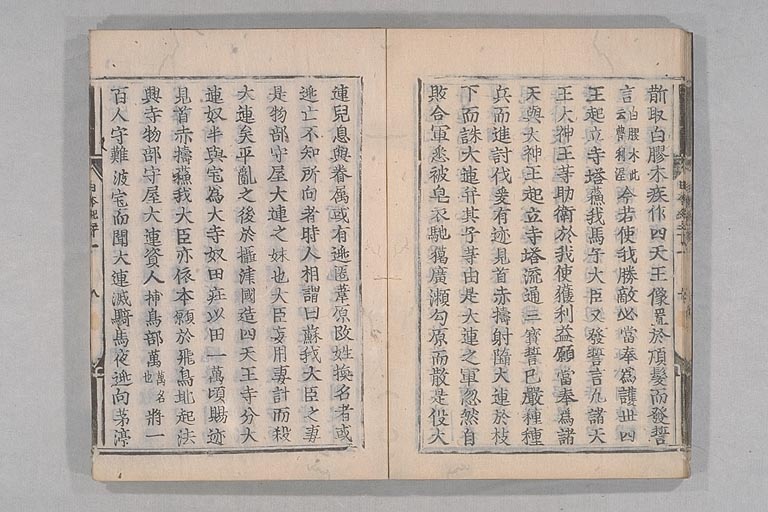 前取白膠木疾作四天王像置於頂髮而發誓
言白膠木此云農利泥今若使我勝敵必當奉為護世四
王起立寺塔蘓我馬子大臣又發誓言凡諸天
王大神王等助衛於我使獲利益願當奉為諸
天與大神王起立寺塔流通三寳誓已嚴種種
兵而進討伐爰有迹見首赤檮射墮大連於枝
下而誅大連并其子等由是大連之軍忽然自
敗合軍悉被皂衣馳獦廣瀬勾原而散是役大
連兒息與眷属或有逃匿葦原改姓換名者或
逃亡不知所向者時人相謂曰蘇我大臣之妻
是物部守屋大連之妹也大臣妄用妻計而殺
大連矣平亂之後於攝津國造四天王寺分大
連奴半與宅為大寺奴田莊以田一萬頃賜迹
見首赤檮蘓我大臣亦依本願於飛鳥地起法
興寺物部守屋大連資人捕鳥部萬萬名也將一
百人守難波宅而聞大連滅騎馬夜逃向茅渟
日本紀
八